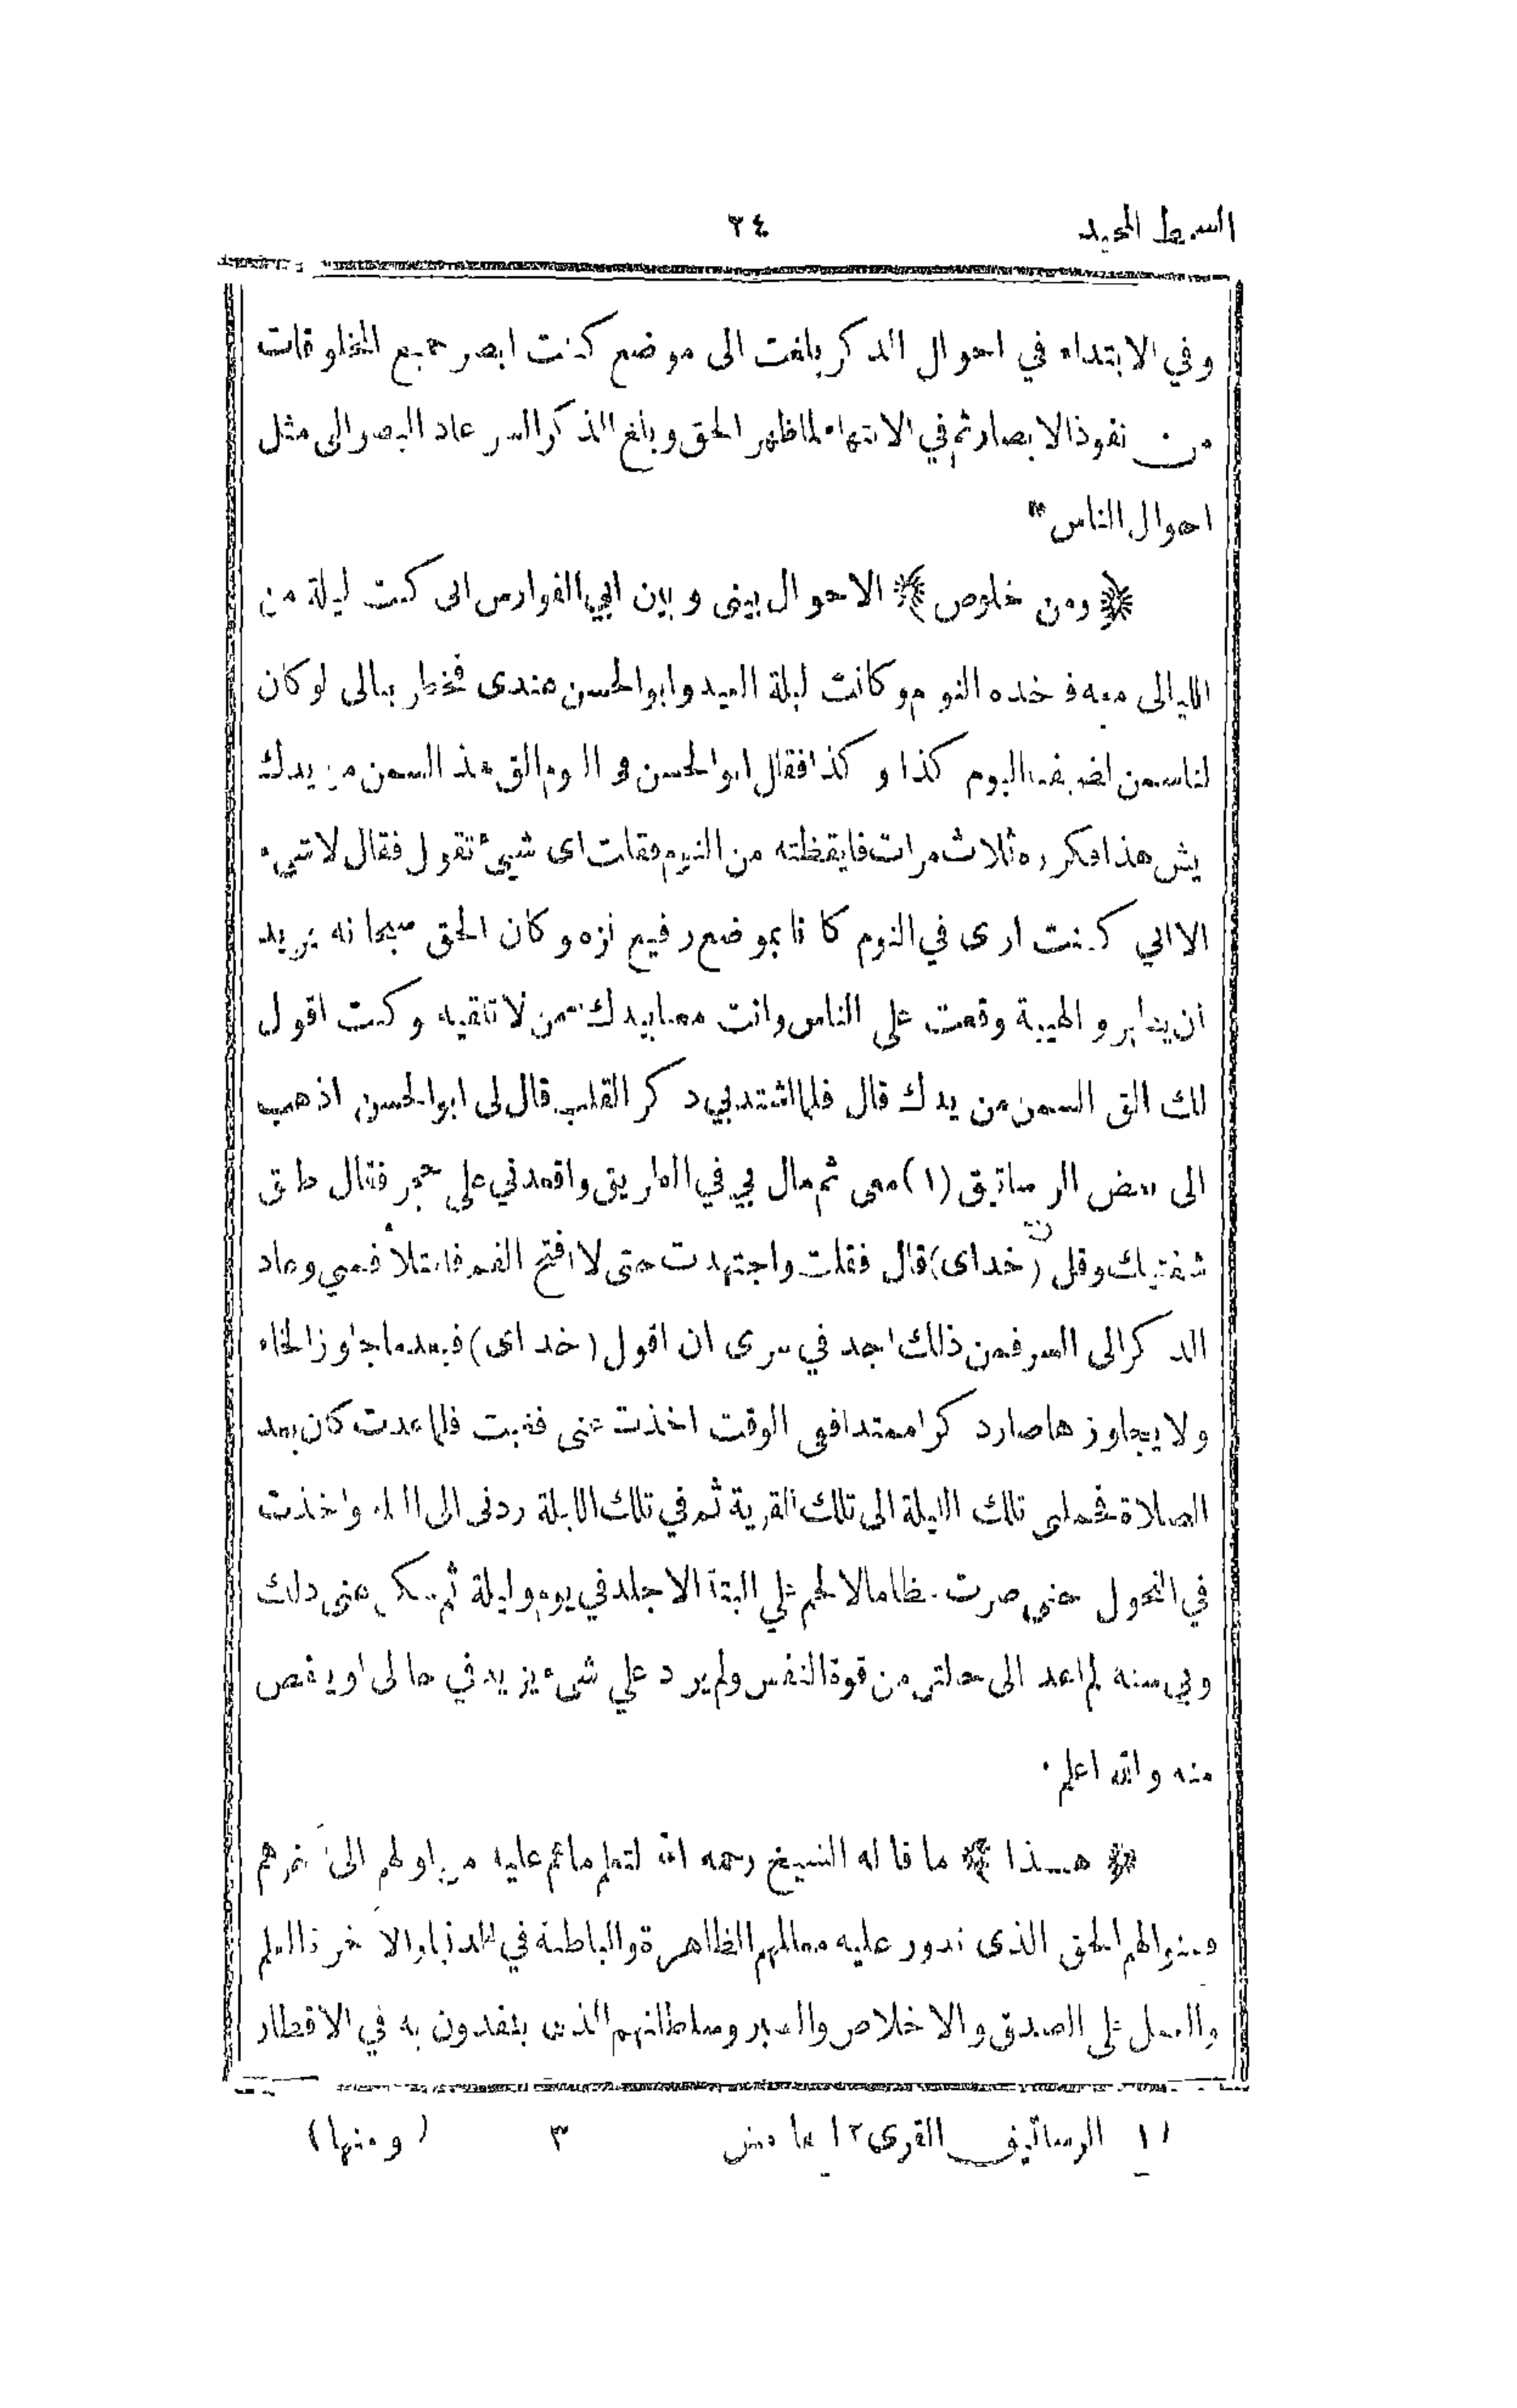 السمط المجيد ٣٤
وفي الابتداء في احوال الذكر بلغت الى موضع كنت ابصر جميع المخلوقات
من نفوذ الابصار ثم في الانتهاء لما ظهر الحق وبلغ الذكر السر عاد البصر الى مثل
احوال الناس *
﴿ ومن خلوص ﴾ الاحوال بيني وبين ابي الفوارس اني كنت ليلة من
الليالى معه فاخذه النوم وكانت ليلة العيد وابو الحسن عندى فخطر ببالى لو كان
لنا سمن اليوم كذا وكذا فقال ابو الحسن في النوم الق هذا السمن من يدك
هذا فكرره ثلاث مرات فايقظته من النوم فقلت اى شيئ تقول فقال لا شيء
الا اني كنت ارى في النوم كانا بموضع رفيع نزه وكان الحق سبحانه يريد
ان والهيبة وقعت على الناس وانت معنا بيدك سمن لا تلقيه وكنت اقول
لك الق السمن من يدك قال فلما اشتد بي ذكر القلب قال لى ابو الحسن اذهب
الى بعض الرساتيق (١) معى ثم مال بي في الطريق واقعدني على حجر فقال طبق
شفتيك وقل (خداى) قال فقلت واجتهدت حتى لا افتح الفم فامتلأ فمي وعاد
الذكر الى السر فمن ذلك اجد في سرى ان اقول (خداى) فبعد ما جاوز الخاء
ولا يجاوزها صار ذكرا ممتدا ففي الوقت اخذت عنى فغبت فلما عدت كان بعد
الصلاة فحملنى تلك الليلة الى تلك القرية ثم في تلك الليلة ردنى الى البلد واخذت
في النحول حتى صرت عظاما لا لحم علي البتة الا جلد في يوم وليلة ثم سكن عنى ذلك
وبي سنه لم اعد الى حالتى من قوة النفس ولم يرد علي شيء يزيد في حالى او ينقص
منه والله اعلم ·
﴿ هـذا ﴾ ما قاله الشيخ رحمه الله لتعلم ما هم عليه من اولهم الى آخرهم
ومنوالهم الحق الذى تدور عليه معالمهم الظاهرة والباطنة في الدنيا والآخرة العلم
والعمل على الصدق والاخلاص والصبر وسلطانهم الذى ينفذون به في الاقطار
(١) الرساتيق القرى ١٢ ٣ (ومنها)